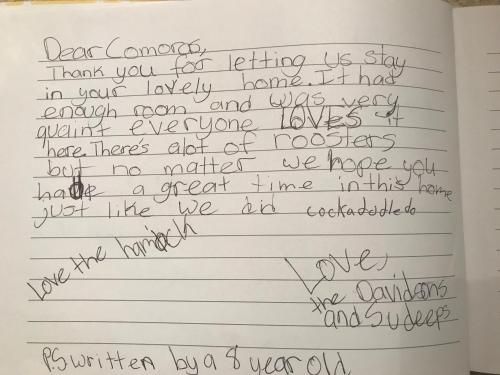 Dear Comoros,
Thank you for letting us stay
in your lovely home. It had
enough room and was very
quaint everyone LOVES it
here. There's alot of roosters
but no matter we hope you
have a great time in this home
just like we did cockadodledo
Love the hamach
Love,
the Davidsons
and Sudeeps
P.S written by a 8 year old